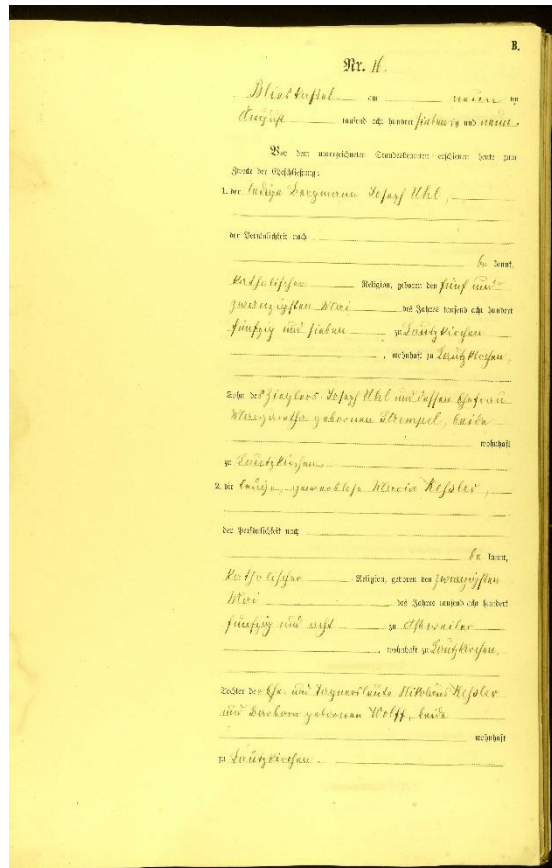 B.
Nr. 16.
Blieskastel am neun ten
August tausend acht hundert siebenzig und neun.
Vor dem unterzeichneten Standesbeamten erschienen heute zum
Zwecke der Eheschließung:
1. der ledige Bergmann Joseph Uhl,
der Persönlichkeit nach
be kannt,
katholischer Religion, geboren den fünf und
zwanzigsten Mai des Jahres tausend acht hundert
fünfzig und sieben zu Lautzkirchen
, wohnhaft zu Lautzkirchen,
Sohn des Zieglers Joseph Uhl und dessen Ehefrau
Margaretha gebornen Strempel, beide
wohnhaft
zu Lautzkirchen.
2. die ledige, gewerblose Maria Kessler,
der Persönlichkeit nach
be kannt,
katholischer Religion, geboren den zwanzigsten
Mai des Jahres tausend acht hundert
fünfzig und acht zu
, wohnhaft zu Lautzkirchen,
Tochter der Ehe- und Tagnersleute Nikolaus Kessler
und Barbara gebornen Wolff, beide
wohnhaft
zu Lautzkirchen.